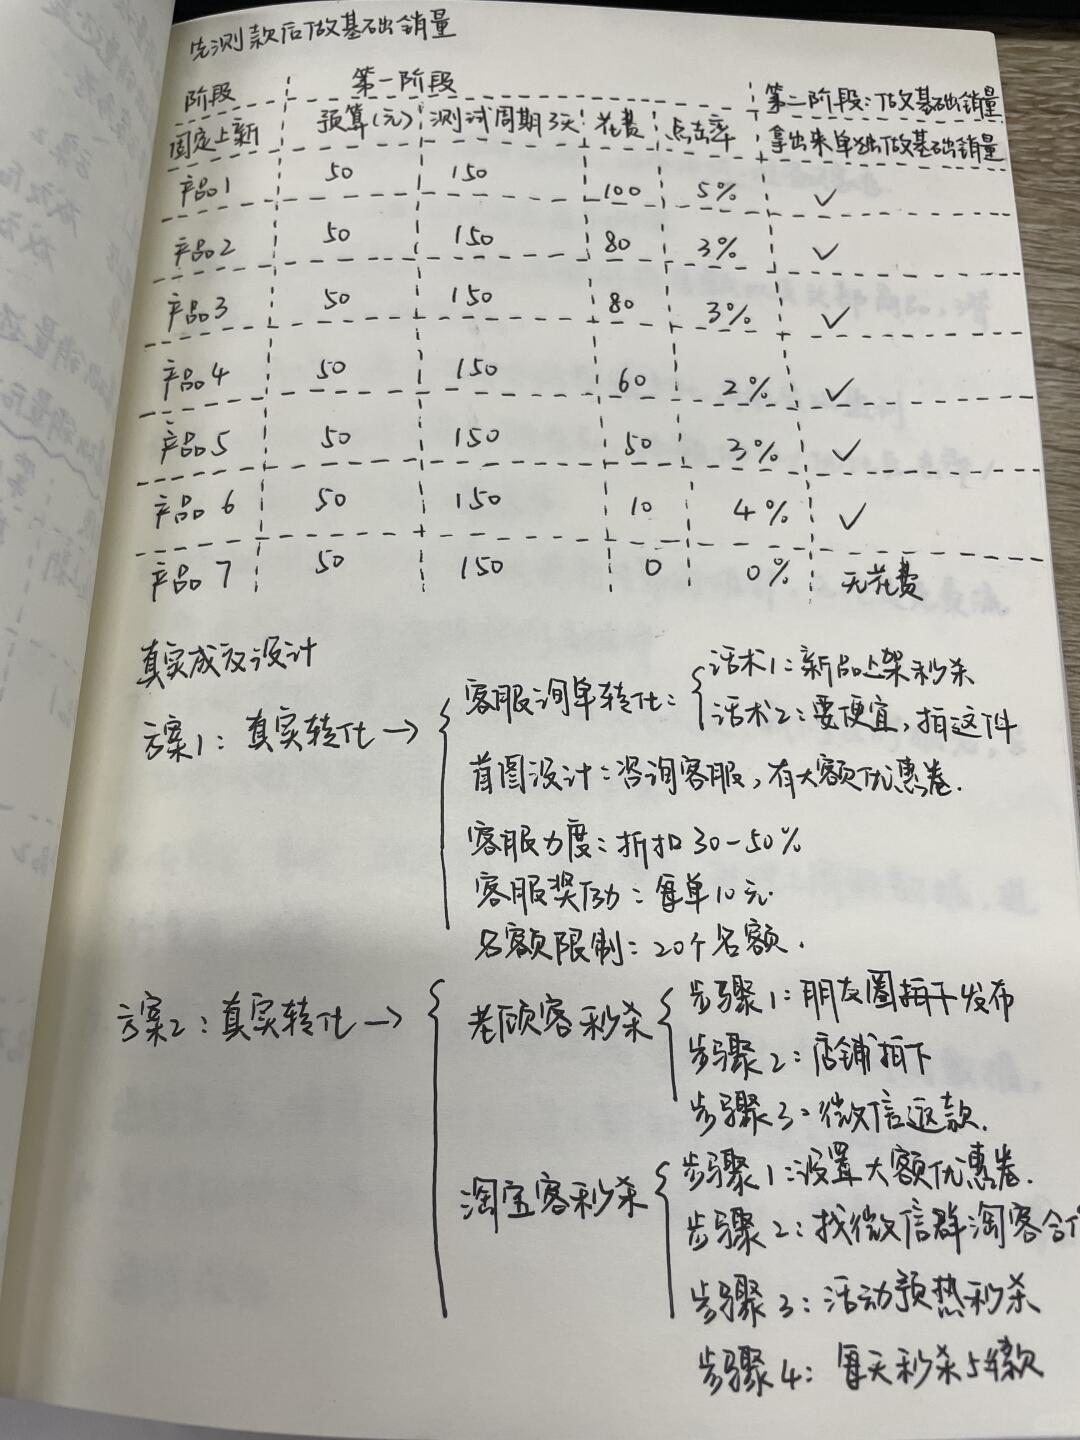 先测款后做基础销量
阶段 第一阶段 第二阶段:做基础销量
固定上新 预算(元) 测试周期3天 花费 点击率 拿出来单独做基础销量
产品1 50 150 100 5% ✓
产品2 50 150 80 3% ✓
产品3 50 150 80 3% ✓
产品4 50 150 60 2% ✓
产品5 50 150 50 3% ✓
产品6 50 150 10 4% ✓
产品7 50 150 0 0% 无花费
真实成交设计
方案1:真实转化→
客服询单转化:
话术1:新品上架秒杀
话术2:要便宜,拍这件
首图设计:咨询客服,有大额优惠卷.
客服力度:折扣30-50%
客服奖励:每单10元.
名额限制:20个名额.
方案2:真实转化→
老顾客秒杀
步骤1:朋友圈拍下发布
步骤2:店铺拍下
步骤3:微信返款.
淘宝客秒杀
步骤1:设置大额优惠卷.
步骤2:找微信群淘客合作
步骤3:活动预热秒杀
步骤4:每天秒杀5款